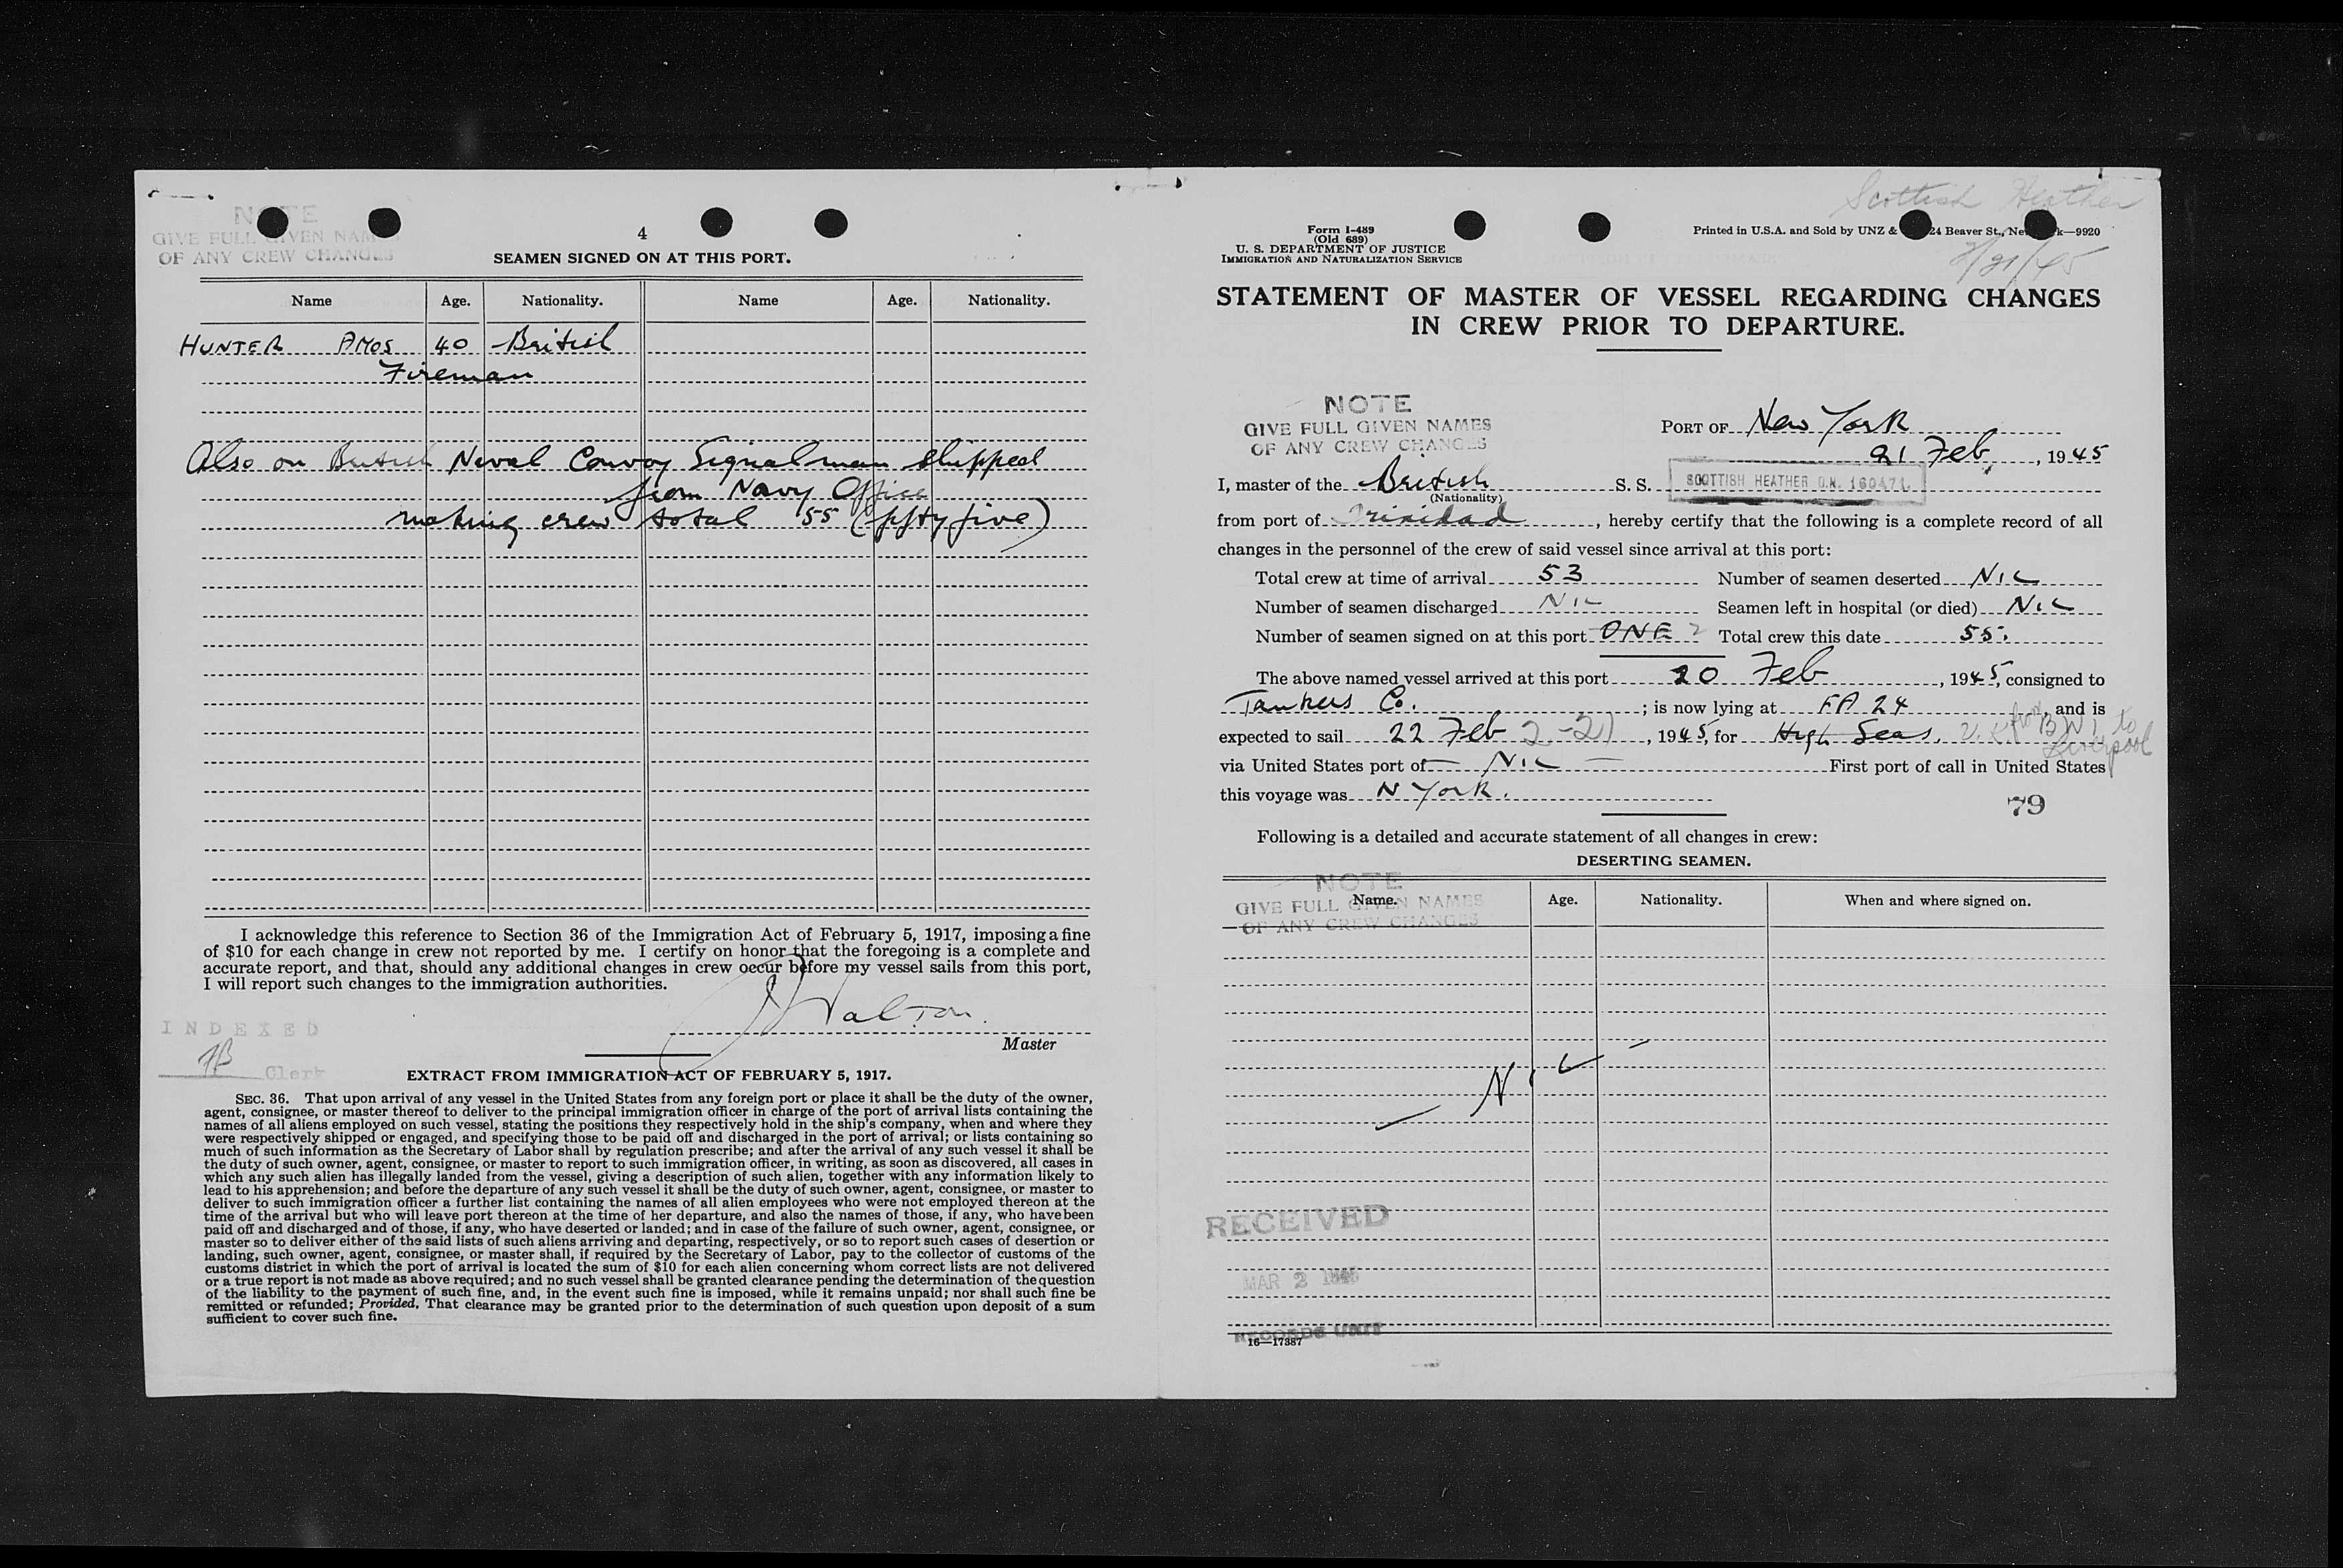 NOTE
GIVE FULL GIVEN NAMES
OF ANY CREW CHANGES
4
SEAMEN SIGNED ON AT THIS PORT.
Name Age. Nationality. Name Age. Nationality.
HUNTER AMOS 40 British
Fireman
Also on British Naval Convoy Signalman shipped
from Navy Office
making crew total 55 (fifty five)
I acknowledge this reference to Section 36 of the Immigration Act of February 5, 1917, imposing a fine
of $10 for each change in crew not reported by me. I certify on honor that the foregoing is a complete and
accurate report, and that, should any additional changes in crew occur before my vessel sails from this port,
I will report such changes to the immigration authorities.
J Walton.
Master
INDEXED
Clerk
EXTRACT FROM IMMIGRATION ACT OF FEBRUARY 5, 1917.
SEC. 36. That upon arrival of any vessel in the United States from any foreign port or place it shall be the duty of the owner,
agent, consignee, or master thereof to deliver to the principal immigration officer in charge of the port of arrival lists containing the
names of all aliens employed on such vessel, stating the positions they respectively hold in the ship's company, when and where they
were respectively shipped or engaged, and specifying those to be paid off and discharged in the port of arrival; or lists containing so
much of such information as the Secretary of Labor shall by regulation prescribe; and after the arrival of any such vessel it shall be
the duty of such owner, agent, consignee, or master to report to such immigration officer, in writing, as soon as discovered, all cases in
which any such alien has illegally landed from the vessel, giving a description of such alien, together with any information likely to
lead to his apprehension; and before the departure of any such vessel it shall be the duty of such owner, agent, consignee, or master to
deliver to such immigration officer a further list containing the names of all alien employees who were not employed thereon at the
time of the arrival but who will leave port thereon at the time of her departure, and also the names of those, if any, who have been
paid off and discharged and of those, if any, who have deserted or landed; and in case of the failure of such owner, agent, consignee, or
master so to deliver either of the said lists of such aliens arriving and departing, respectively, or so to report such cases of desertion or
landing, such owner, agent, consignee, or master shall, if required by the Secretary of Labor, pay to the collector of customs of the
customs district in which the port of arrival is located the sum of $10 for each alien concerning whom correct lists are not delivered
or a true report is not made as above required; and no such vessel shall be granted clearance pending the determination of the question
of the liability to the payment of such fine, and, in the event such fine is imposed, while it remains unpaid; nor shall such fine be
remitted or refunded; Provided, That clearance may be granted prior to the determination of such question upon deposit of a sum
sufficient to cover such fine.
Scottish Heather
2/21/45
Form I-489
(Old 689)
U. S. DEPARTMENT OF JUSTICE
IMMIGRATION AND NATURALIZATION SERVICE
Printed in U.S.A. and Sold by UNZ & 24 Beaver St., New York—9920
STATEMENT OF MASTER OF VESSEL REGARDING CHANGES
IN CREW PRIOR TO DEPARTURE.
NOTE
GIVE FULL GIVEN NAMES
OF ANY CREW CHANGES
PORT OF New York
21 Feb, 1945
I, master of the British S. S. SCOTTISH HEATHER O.N. 160471.
(Nationality)
from port of Trinidad, hereby certify that the following is a complete record of all
changes in the personnel of the crew of said vessel since arrival at this port:
Total crew at time of arrival 53 Number of seamen deserted NIL
Number of seamen discharged NIL Seamen left in hospital (or died) NIL
Number of seamen signed on at this port ONE 2 Total crew this date 55.
The above named vessel arrived at this port 20 Feb, 1945, consigned to
Tankers Co.; is now lying at FA 24, and is
expected to sail 22 Feb 2-21, 1945, for High Seas. U.K. from B W I to
Liverpool
via United States port of — NIL — First port of call in United States
this voyage was N York.
79
Following is a detailed and accurate statement of all changes in crew:
DESERTING SEAMEN.
NOTE
GIVE FULL GIVEN NAMES
OF ANY CREW CHANGES
Name. Age. Nationality. When and where signed on.
— NIL —
RECEIVED
MAR 2 1945
RECORDS UNIT
16—17387